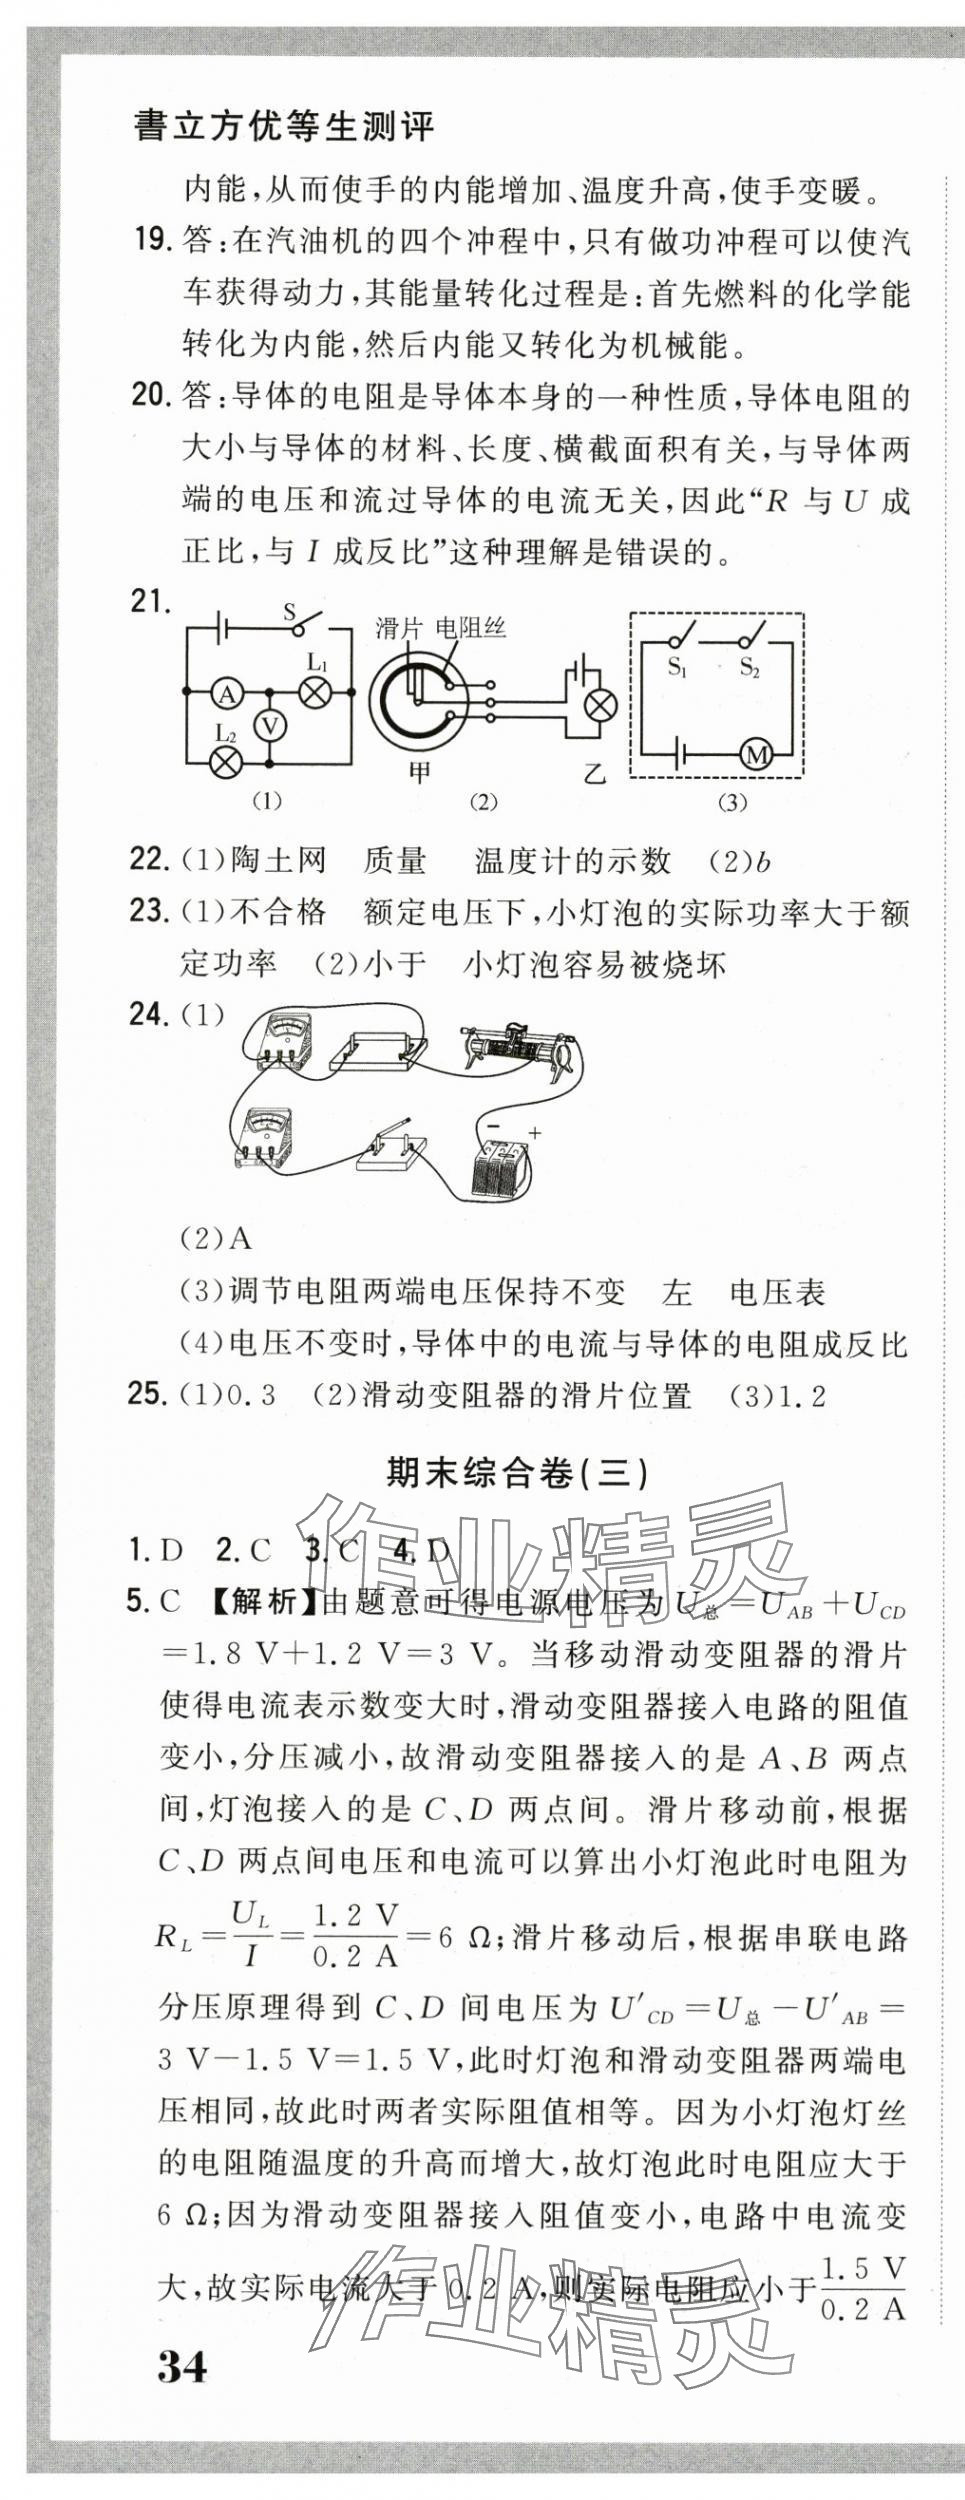 書立方优等生测评
内能,从而使手的内能增加、温度升高,使手变暖。
19. 答:在汽油机的四个冲程中,只有做功冲程可以使汽
车获得动力,其能量转化过程是:首先燃料的化学能
转化为内能,然后内能又转化为机械能。
20. 答:导体的电阻是导体本身的一种性质,导体电阻的
大小与导体的材料、长度、横截面积有关,与导体两
端的电压和流过导体的电流无关,因此“R 与 U 成
正比,与 I 成反比”这种理解是错误的。
21.
S
L₁
A
V
L₂
(1)
滑片 电阻丝
甲
乙
(2)
S₁ S₂
M
(3)
22. (1)陶土网 质量 温度计的示数 (2)b
23. (1)不合格 额定电压下,小灯泡的实际功率大于额
定功率 (2)小于 小灯泡容易被烧坏
24. (1)
− +
(2)A
(3)调节电阻两端电压保持不变 左 电压表
(4)电压不变时,导体中的电流与导体的电阻成反比
25. (1)0.3 (2)滑动变阻器的滑片位置 (3)1.2
期末综合卷(三)
1. D 2. C 3. C 4. D
5. C 【解析】由题意可得电源电压为 U总=U_AB+U_CD
=1.8 V+1.2 V=3 V。当移动滑动变阻器的滑片
使得电流表示数变大时,滑动变阻器接入电路的阻值
变小,分压减小,故滑动变阻器接入的是 A、B 两点
间,灯泡接入的是 C、D 两点间。滑片移动前,根据
C、D 两点间电压和电流可以算出小灯泡此时电阻为
R_L=U_L/I=1.2 V/0.2 A=6 Ω;滑片移动后,根据串联电路
分压原理得到 C、D 间电压为 U′_CD=U总−U′_AB=
3 V−1.5 V=1.5 V,此时灯泡和滑动变阻器两端电
压相同,故此时两者实际阻值相等。因为小灯泡灯丝
的电阻随温度的升高而增大,故灯泡此时电阻应大于
6 Ω;因为滑动变阻器接入阻值变小,电路中电流变
大,故实际电流大于 0.2 A,则实际电阻应小于1.5 V/0.2 A
34
作业精灵
作业精灵